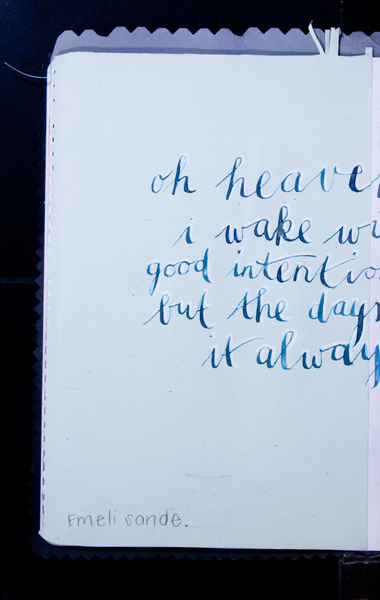 oh heave
i wake wi
good intentio
but the days
it always
Emeli sande.